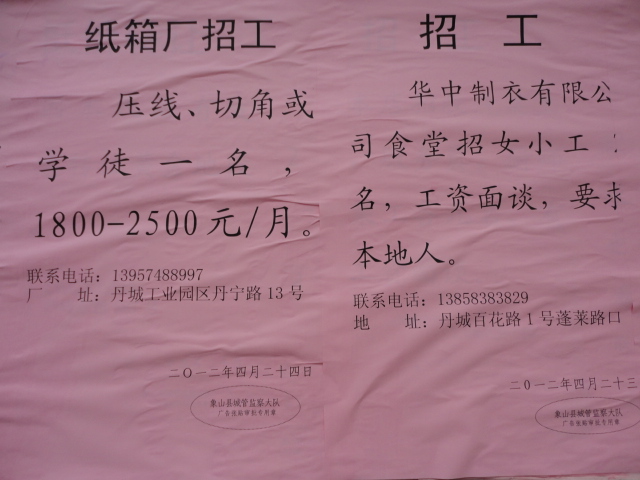 纸箱厂招工
压线、切角或
学徒一名，
1800-2500元/月。
联系电话：13957488997
厂 址：丹城工业园区丹宁路13号
二〇一二年四月二十四日
象山县城管监察大队
广告张贴审批专用章
招 工
华中制衣有限公
司食堂招女小工
名，工资面谈，要求
本地人。
联系电话：13858383829
地 址：丹城百花路1号蓬莱路口
二〇一二年四月二十三
象山县城管监察大队
广告张贴审批专用章